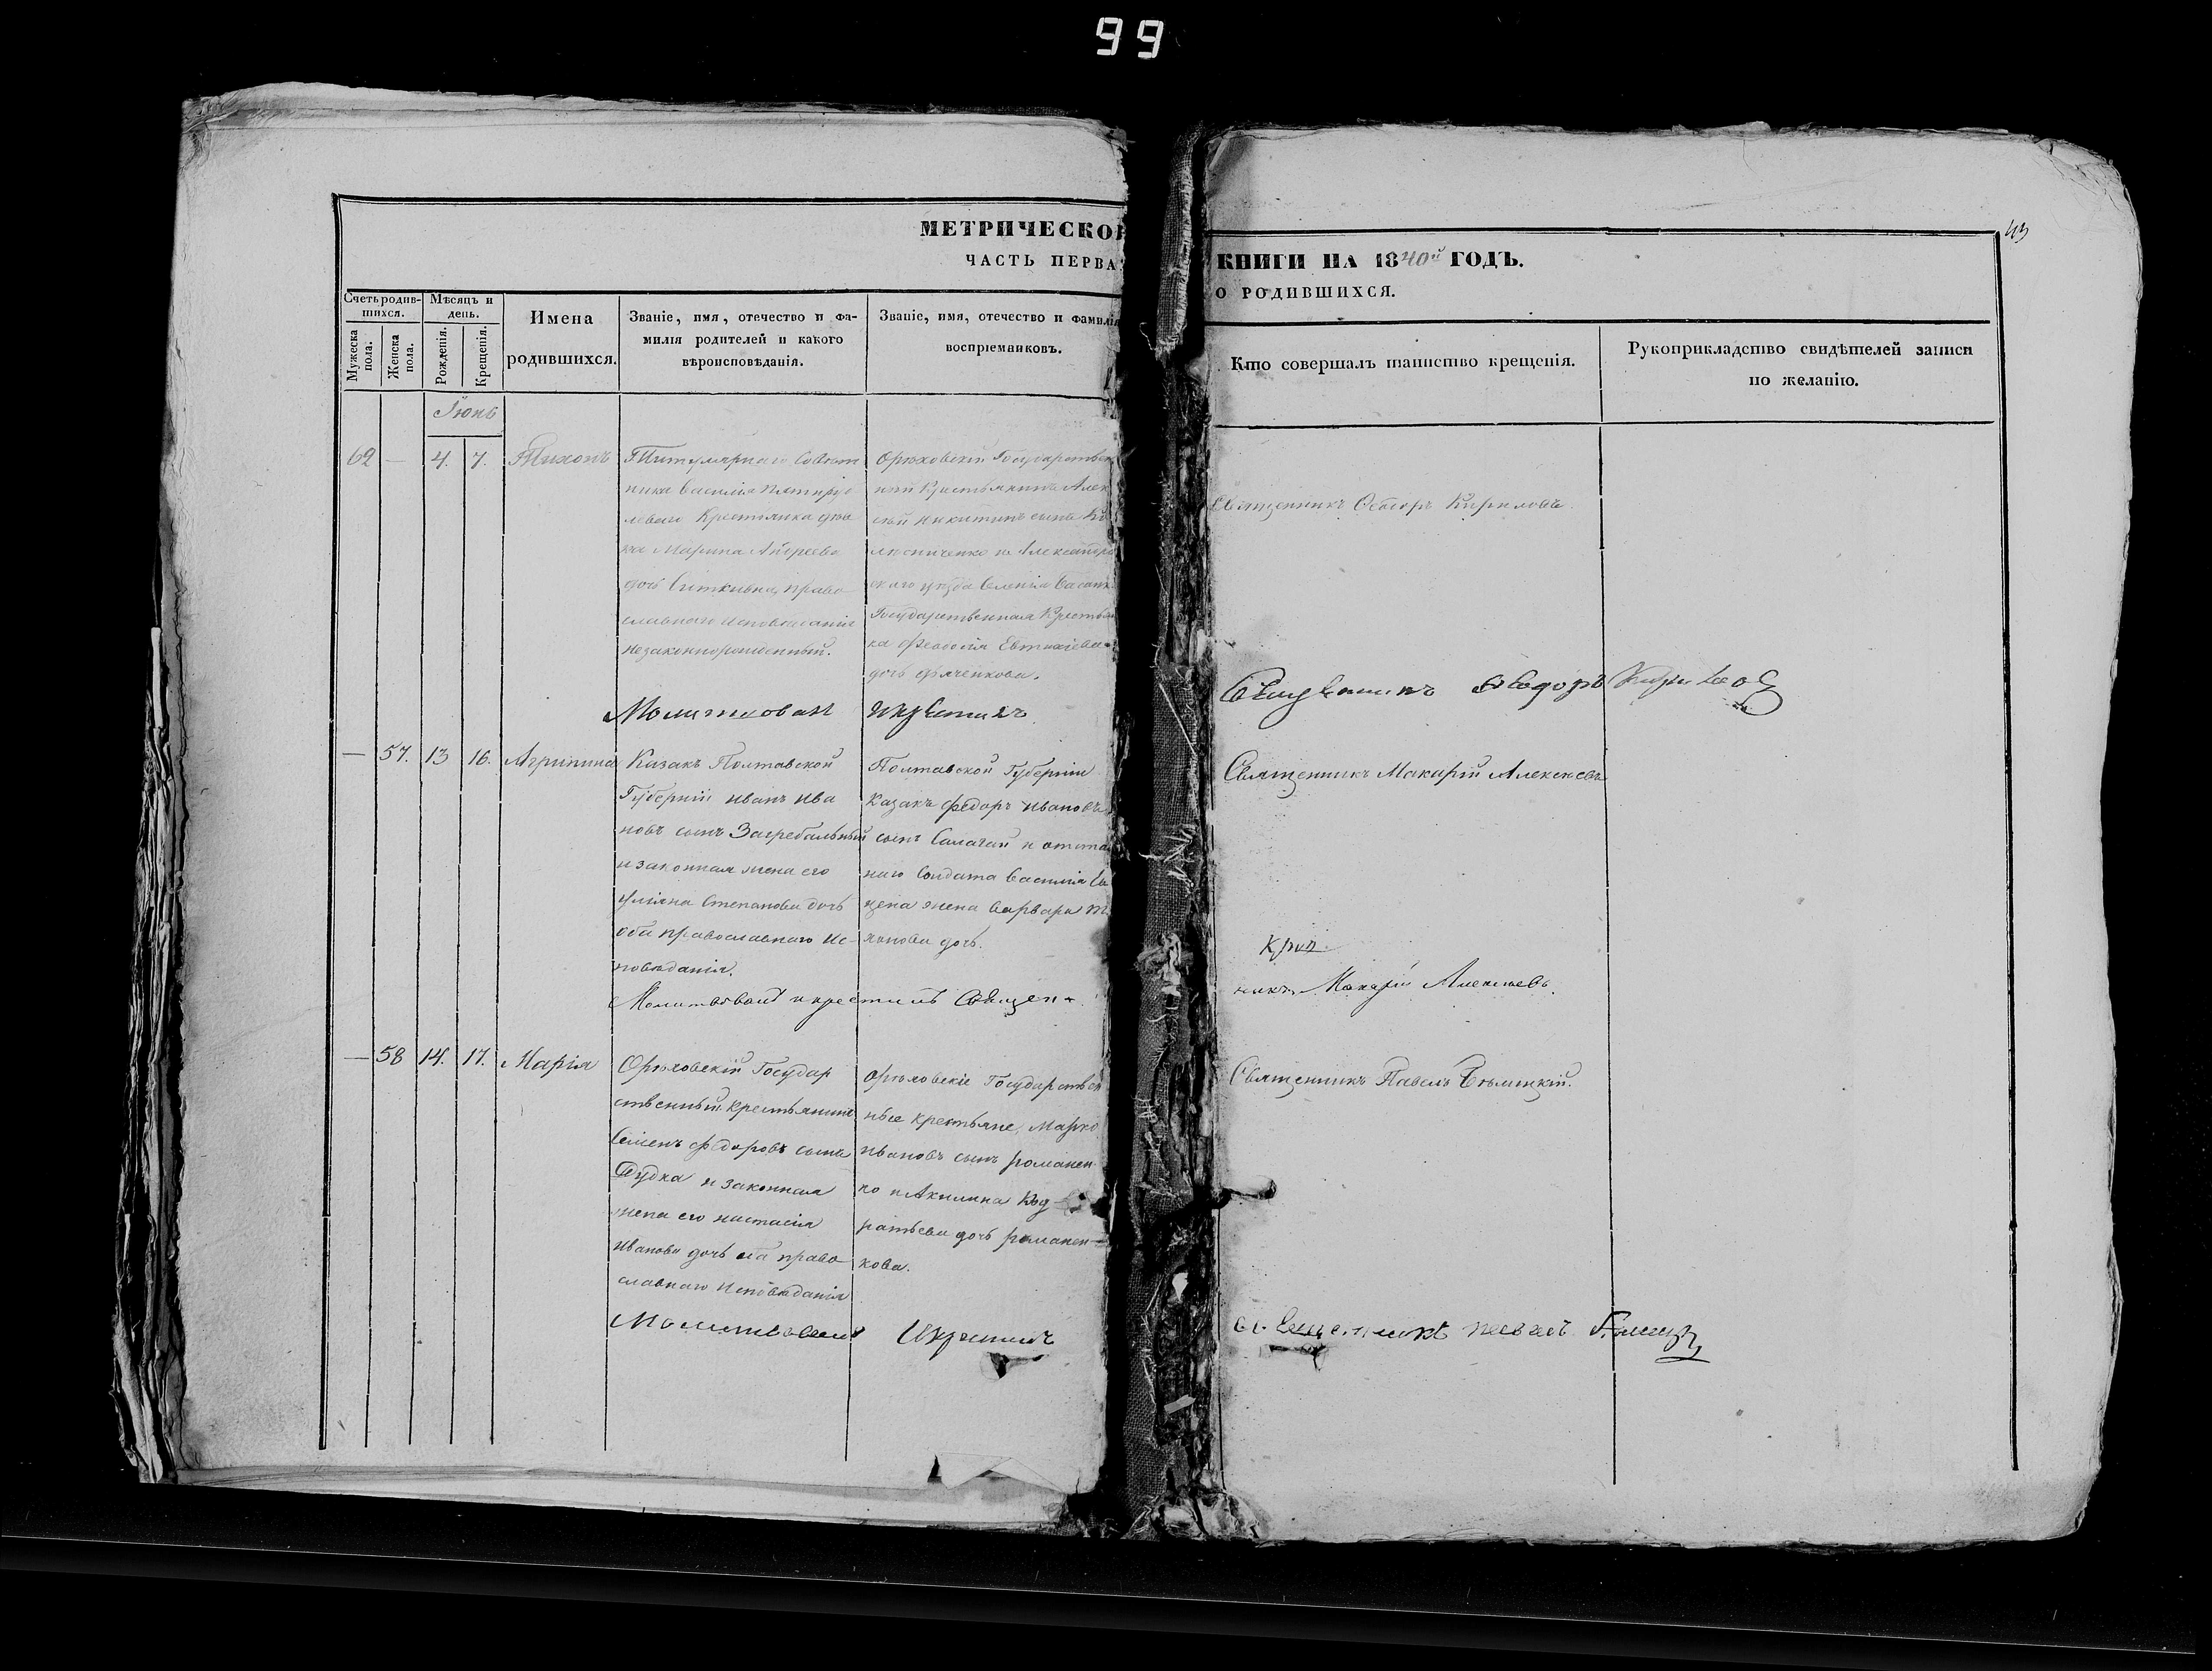 99
МЕТРИЧЕСКО
ЧАСТЬ ПЕРВА
КНИГИ НА 1840й ГОДЪ.
О РОДИВШИХСЯ.
43
Счетъ родив-
шихся.
Мужеска
пола.
Женска
пола.
Мѣсяцъ и
день.
Рожденія.
Крещенія.
Имена
родившихся.
Званіе, имя, отечество и фа-
милія родителей и какого
вѣроисповѣданія.
Званіе, имя, отечество и фамилія
воспріемниковъ.
Кто совершалъ таинство крещенія.
Рукоприкладство свидѣтелей записи
по желанію.
Іюнь
62 — 4. 7. Тихонъ
Титулярнаго Совѣт
ника Василія
Крестьянка дѣв
ка Марина Андреева
дочь право
славнаго исповѣданія
незаконнорожденный.
Орѣховскій Государствен
ный Крестьянинъ Алек
сѣй Никитинъ сынъ
и Александров
скаго уѣзда Селенія
Государственная Крестьян
ка Феодосія Евтихіева
дочь Дяченкова.
Священникъ Ѳеодоръ Кириловъ
Молитвовал и крестилъ
Священникъ Ѳеодоръ Кирилов
— 57. 13 16. Агрипина
Казакъ Полтавской
Губерніи Иванъ Ива
новъ сынъ Загребальный
и законная жена его
Уліяна Степанова дочь
оба православнаго Ис-
повѣданія.
Полтавской Губерніи
Казакъ Федоръ Ивановъ
сынъ Салогай и отста
наго Солдата Василія
жена Варвара
дочь.
Священникъ Макарій Алексѣевъ
Молитвовалъ и крестилъ Священ-
никъ Макарій Алексѣевъ.
— 58 14. 17. Марія
Орѣховскій Государ
ственный крестьянинъ
Семенъ Федоровъ сынъ
Дудка и законная
жена его Настасія
Иванова дочь оба право
славнаго Исповѣданія
Орѣховскіе Государствен
ные крестьяне, Марко
Ивановъ сынъ Романен
ко и Акилина Код
ратьева дочь Романен-
кова.
Священникъ Павелъ Бѣлицкій.
Молитвовалъ И крестилъ
Священникъ Павелъ